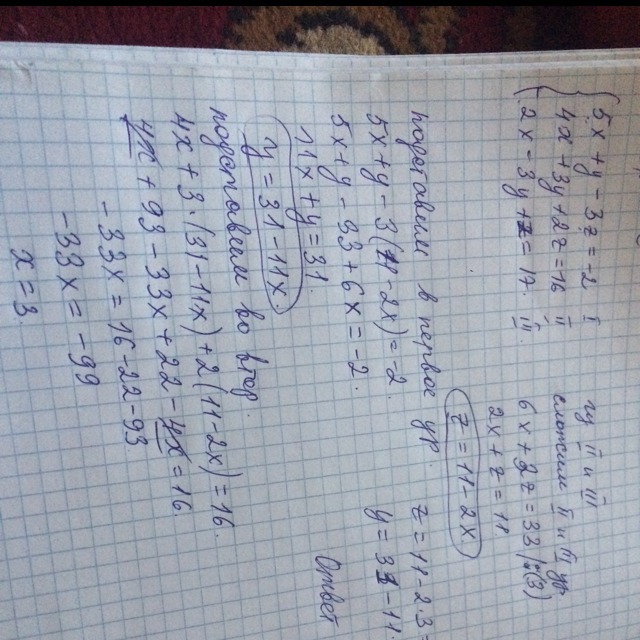 5x + y - 3z = -2 I
4x + 3y + 2z = 16 II
2x - 3y + z = 17. III
из II и III
сложим II и II ур
6x + 3z = 33 /:(3)
2x + z = 11
z = 11 - 2x
подставим в первое ур.
5x + y - 3(11 - 2x) = -2.
5x + y - 33 + 6x = -2.
11x + y = 31
y = 31 - 11x
подставим во втор.
4x + 3·(31 - 11x) + 2(11 - 2x) = 16.
4x + 93 - 33x + 22 - 4x = 16
- 33x = 16 - 22 - 93.
- 33x = - 99
x = 3.
z = 11 - 2·3
y = 31 - 11
Ответ